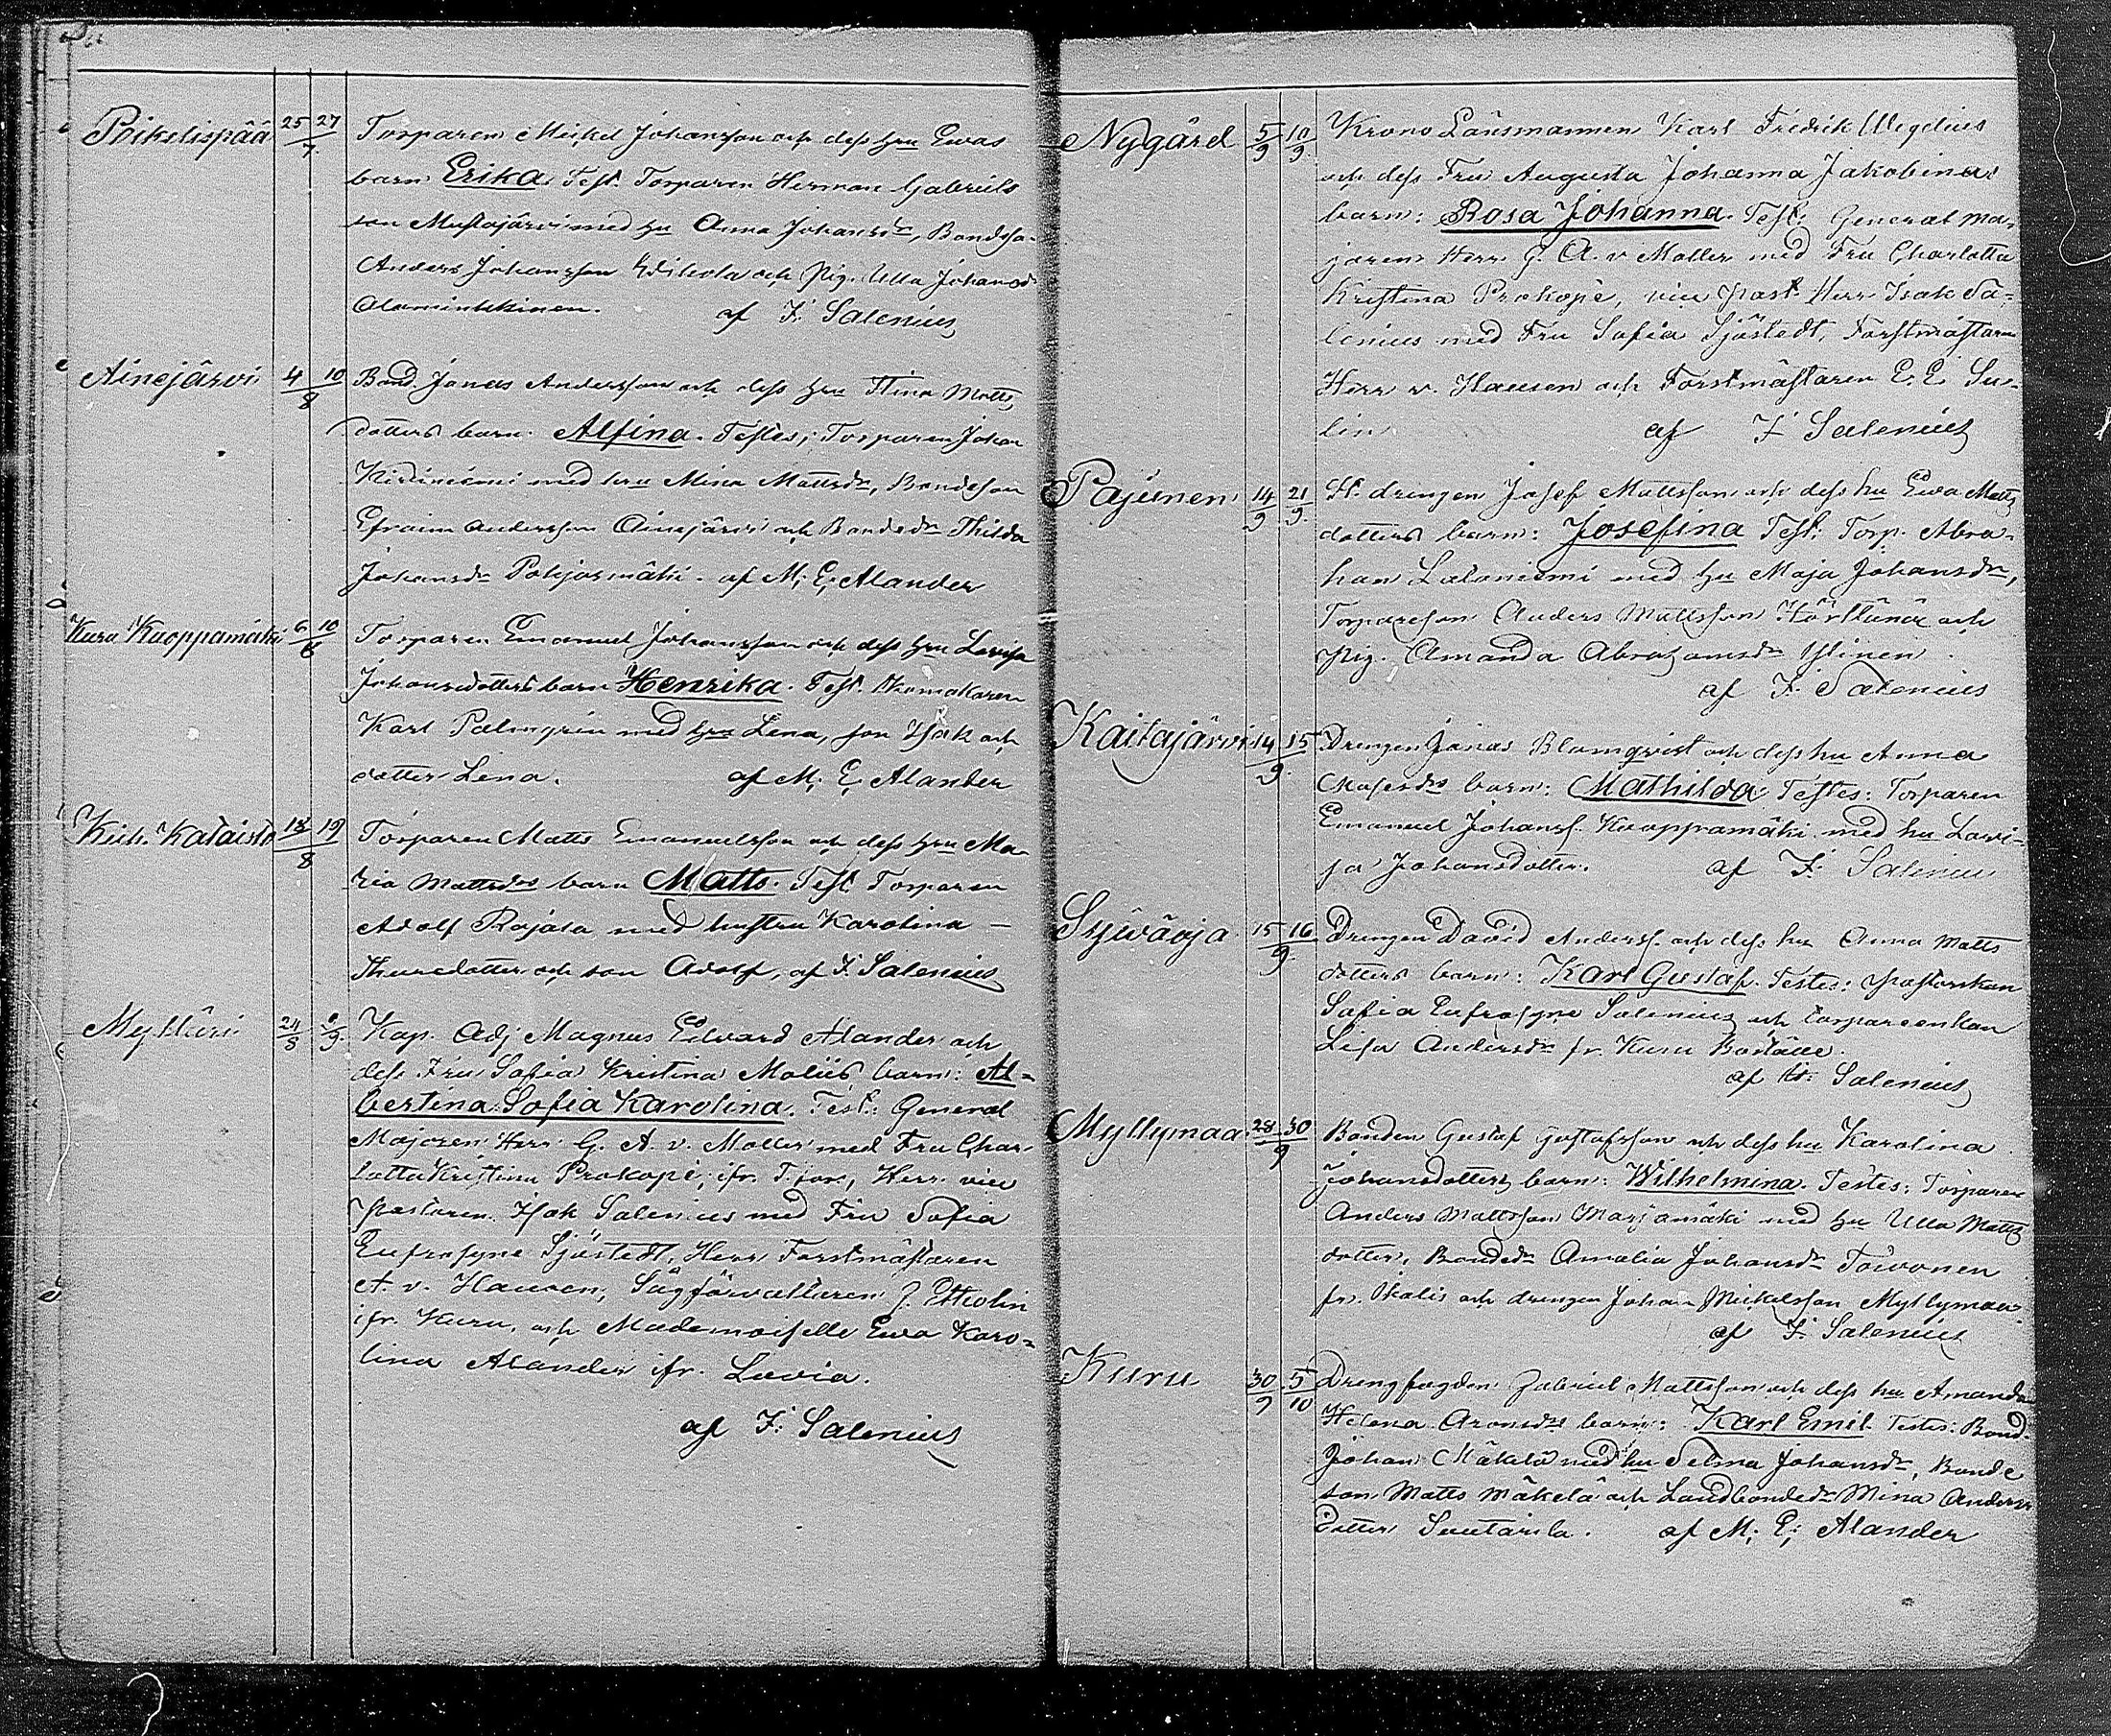 Poikelispää 25 27
7
Torparen Mickel Johansson och dess hru Ewas
barn Erika. Test. Torparen Herman Gabriels
son Mustajärvi med hu Anna Johansdr, Bondeso-
Anders Johansson och Pig. Ulla Johansdr
Alaminkkinen. af I. Salenius
Ainejärvi 4 10
8
Bond. Jonas Andersson och dess hru Stina Matts
dotters barn. Alfina. Testes; Torparen Johan
Kirdiniemi med hru Mina Mattsdr, Bondeson
Efraim Andersson Ainejärvi och Bondedr Thilda
Johansdr Pohjasmäki. af M. E. Alander
Kuru Kuoppamäki 6 10
8
Torparen Emanuel Johansson och dess hru Lovisa
Johansdotters barn Henrika. Test. Skomakaren
Karl Palmgrén med hru Lena, son Isak och
dotter Lena. af M. E. Alander
Keih. Kataisto 18 19
8
Torparen Matts Emanuelsson och dess hru Ma-
ria Mattsdrs barn Matts. Test. Torparen
Adolf Rajala med hustru Karolina —
Thuredotter och son Adolf, af I. Salenius
Myllärii 24
8 9
Kap. Adj Magnus Edvard Alander och
dess Fru Sofia Kristina Moliis barn: Al-
bertina Sofia Karolina. Test: General
Majoren Herr G. A. v. Moller med Fru Char-
lotta Kristina Prokopé, ifr. T:fors, Herr vice
Pastoren Isak Salenius med Fru Sofia
Eufrosyne Sjöstedt, Herr Forstmästaren
A. v. Hausen, Sågförvaltaren J. Etholin
ifr. Kuru, och Mademoiselle Ewa Karo-
lina Alander ifr. Lavia.
af I. Salenius
Nygård 5 10
9 9
Krono Länsmannen Karl Fredrik Wegelius
och dess Fru Augusta Johanna Jakobinas
barn: Rosa Johanna. Test: General Ma-
joren Herr G. A. v Moller med Fru Charlotta
Kristina Prokopé, vice past. Herr Isak Sa-
lenius med Fru Sofia Sjöstedt, Forstmästaren
Herr v. Hausen och Forstmästaren E. E. Su-
lin af I Salenius
Pajunen 14 21
9 9
St. drengen Josef Mattsson och dess hu Ewa Matts
dotters barn: Josefina Test: Torp. Abra-
ham Lataniemi med hu Maja Johansdr,
Torpareson Anders Mattsson och
Pig. Amanda Abrahamsdr Ylinen.
af I. Salenius
Kaitajärvi 14 15
9
Drengen Jonas Blomqvist och dess hu Anna
Mosesdrs barn: Mathilda Testes: Torparen
Emanuel Johanss. Kuoppamäki med hu Lovi-
sa Johansdotter. af I. Salenius
Sywäoja 15 16
9
Drengen David Anderss. och dess hu Anna Matts
dotters barn: Karl Gustaf. Testes: Pastorskan
Sofia Eufrosyne Salenius och Torpareenkan
Lisa Andersdr fr. Kuru Boställe.
af I. Salenius
Myllymaa 28 30
9
Bonden Gustaf Gustafsson och dess hu Karolina
Johansdotters barn: Wilhelmina. Testes: Torparen
Anders Mattsson Marjamäki med hu Ulla Matts
dotter, Bondedr Amalia Johansdr Toivonen
fr. Ikalis och drengen Johan Mickelsson Myllymaa
af I. Salenius
Kuru 30 5
9 10
Drengfogden Gabriel Mattsson och dess hu Amanda
Helena Aronsdrs barn: Karl Emil. Testes: Bond.
Johan Mäkelä med hu Selma Johansdr, Bonde
son Matts Mäkelä och Landbondedr Mina Anders
dotter Suutarila. af M. E. Alander